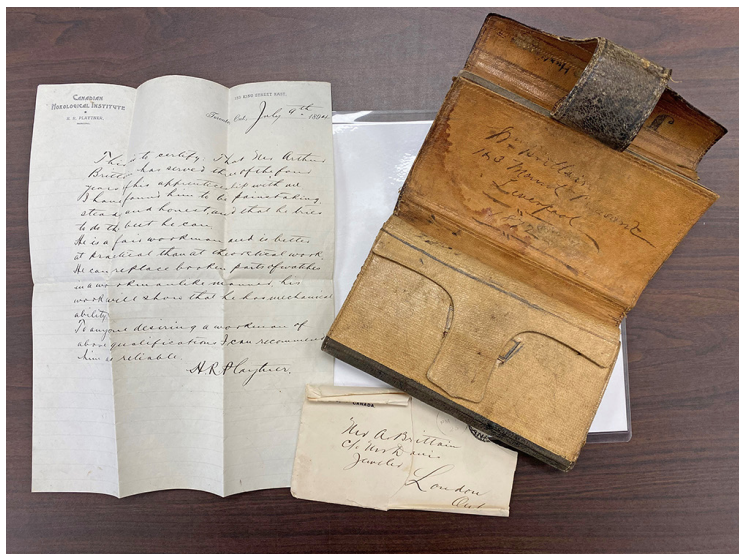 CANADIAN
HOROLOGICAL INSTITUTE
H. R. PLAYTNER.
133 KING STREET EAST.
Toronto, Ont. July 9th 1894
This is to certify, That Mr Arthur
Brittain has served three of the four
years of his apprenticeship with me
I have found him to be painstaking
steady and honest and that he tries
to do the best he can.
He is a fair workman and is better
at practical than at theoretical work.
He can replace broken parts of watches
in a workmanlike manner his
work will show that he has mechanical
ability
To anyone desiring a workman of
above qualifications I can recommend
him as reliable.
H R Playtner.
Brittain
Liverpool
CANADA
Mr A. Brittain
C/o Mr Davis
Jeweler
London
Ont